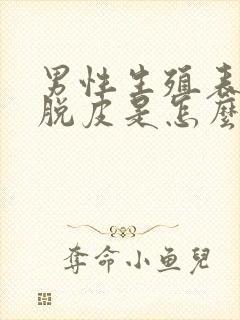 男性生殖表
脱皮是怎麼
夺命小鱼兒